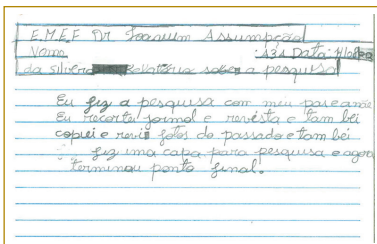 E.M.E.F Dr Joaquim Assumpção
Nome :A31 Data:
da silveira Relatório sobre a pesquisa
Eu fiz a pesquisa com meu
Eu recortei jornal e revista e tam bei
copiei e revi fotos do passado e tam bei
fiz uma capa para pesquisa e agora
terminou ponto final.